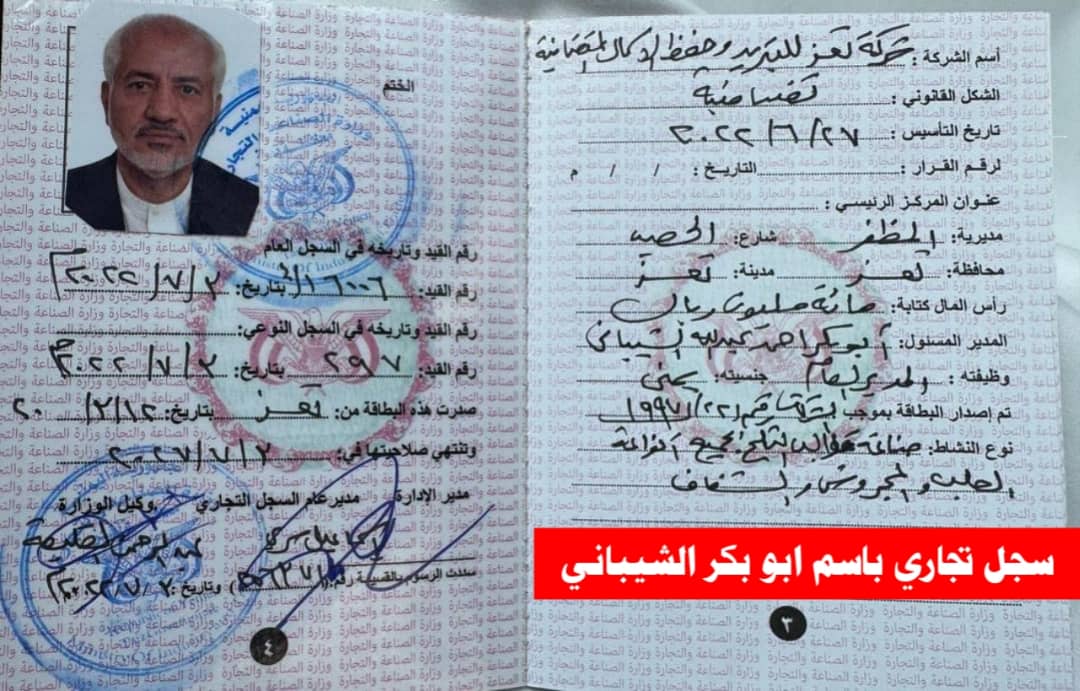 اسم الشركة : شركة تعز للتبريد وحفظ الأسماك التضامنية
الشكل القانوني : تضامنية
تاريخ التأسيس : ٢٠٢٢/٦/٢٧
لرقم القرار : التاريخ : / / م
عنوان المركز الرئيسي :
مديرية: المظفر شارع: الحصب
محافظة: تعز مدينة: تعز
رأس المال كتابة: مائة مليون ريال
المدير المسئول: أبوبكر احمد عبدالله الشيباني
وظيفته : المدير العام جنسيته: يمني
تم إصدار البطاقة بموجب رقم (٢٢) ١٩٩٧
نوع النشاط: صناعة قوالب الثلج بجميع أنواعه
الصلب و المجروش والشفاف
سجل تجاري باسم ابو بكر الشيباني
٣
الختم
رقم القيد وتاريخه في السجل العام
رقم القيد: ١٦٠٠٦ بتاريخ: ٢٠٢٢/٧/٣
رقم القيد وتاريخه في السجل النوعي:
رقم القيد: ٢٩٧ بتاريخ: ٢٠٢٢/٧/٣
صدرت هذه البطاقة من: تعز بتاريخ:
وتنتهي صلاحيتها في: ٢٠٢٧/٧/٢
مدير الإدارة مدير عام السجل التجاري وكيل الوزارة
سددت الرسوم بالقسيمة رقم: وتاريخ:
٤